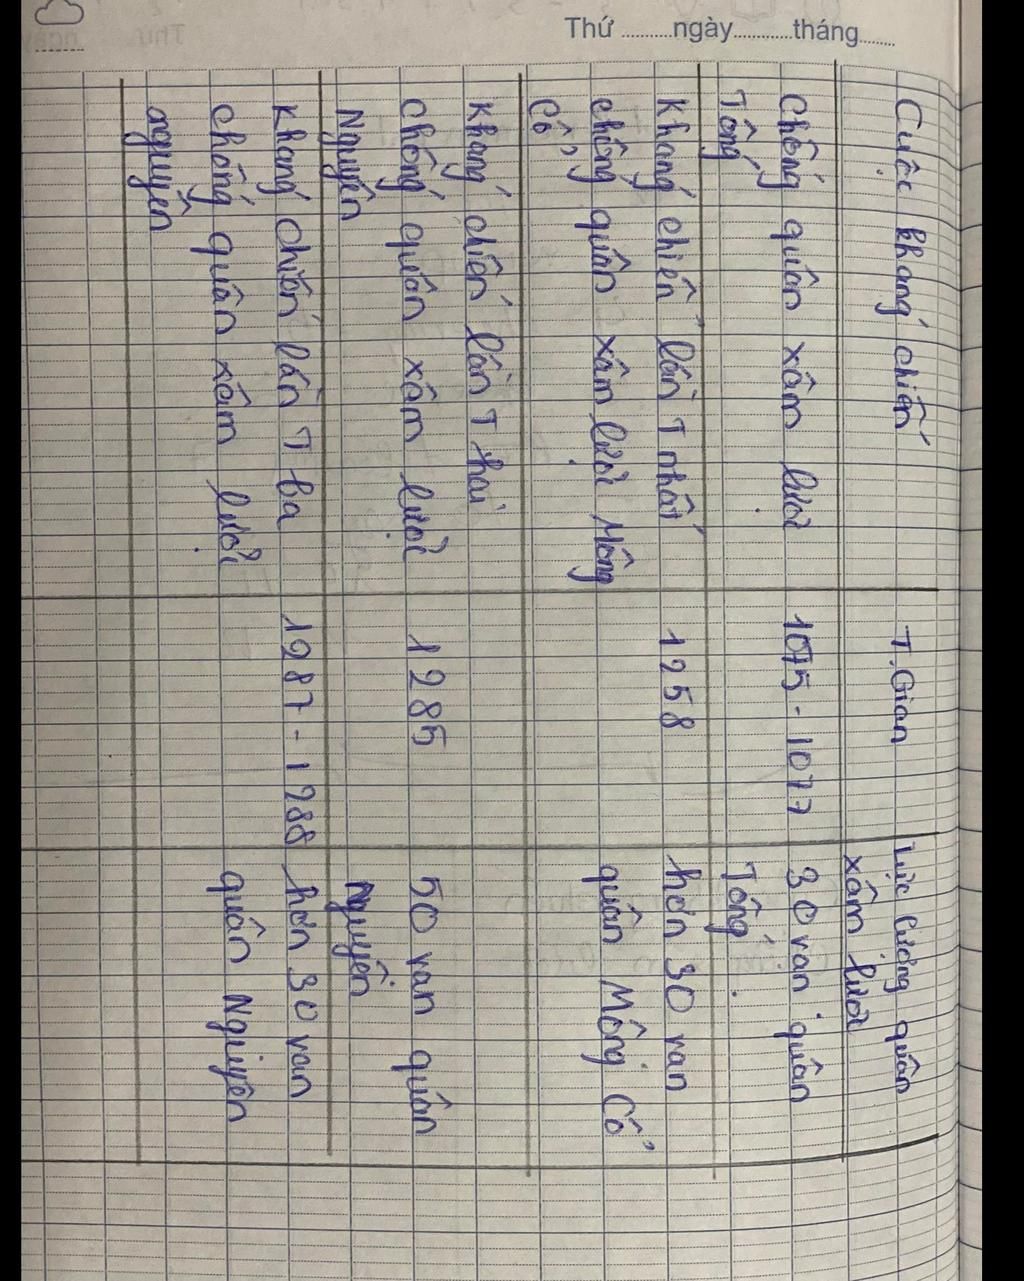 Thứ ..........ngày............tháng.......
Cuộc kháng chiến T.Gian Lực lượng quân
xâm lược
Chống quân xâm lược 1075 - 1077 30 vạn quân
Tống Tống.
Kháng chiến lần T nhất 1258 hơn 30 vạn
chống quân xâm lược Mông quân Mông Cổ
Cổ
Kháng chiến lần T hai
chống quân xâm lược 1285 50 vạn quân
Nguyên Nguyên
Kháng chiến lần T ba 1287 - 1288 hơn 30 vạn
chống quân xâm lược quân Nguyên
nguyên